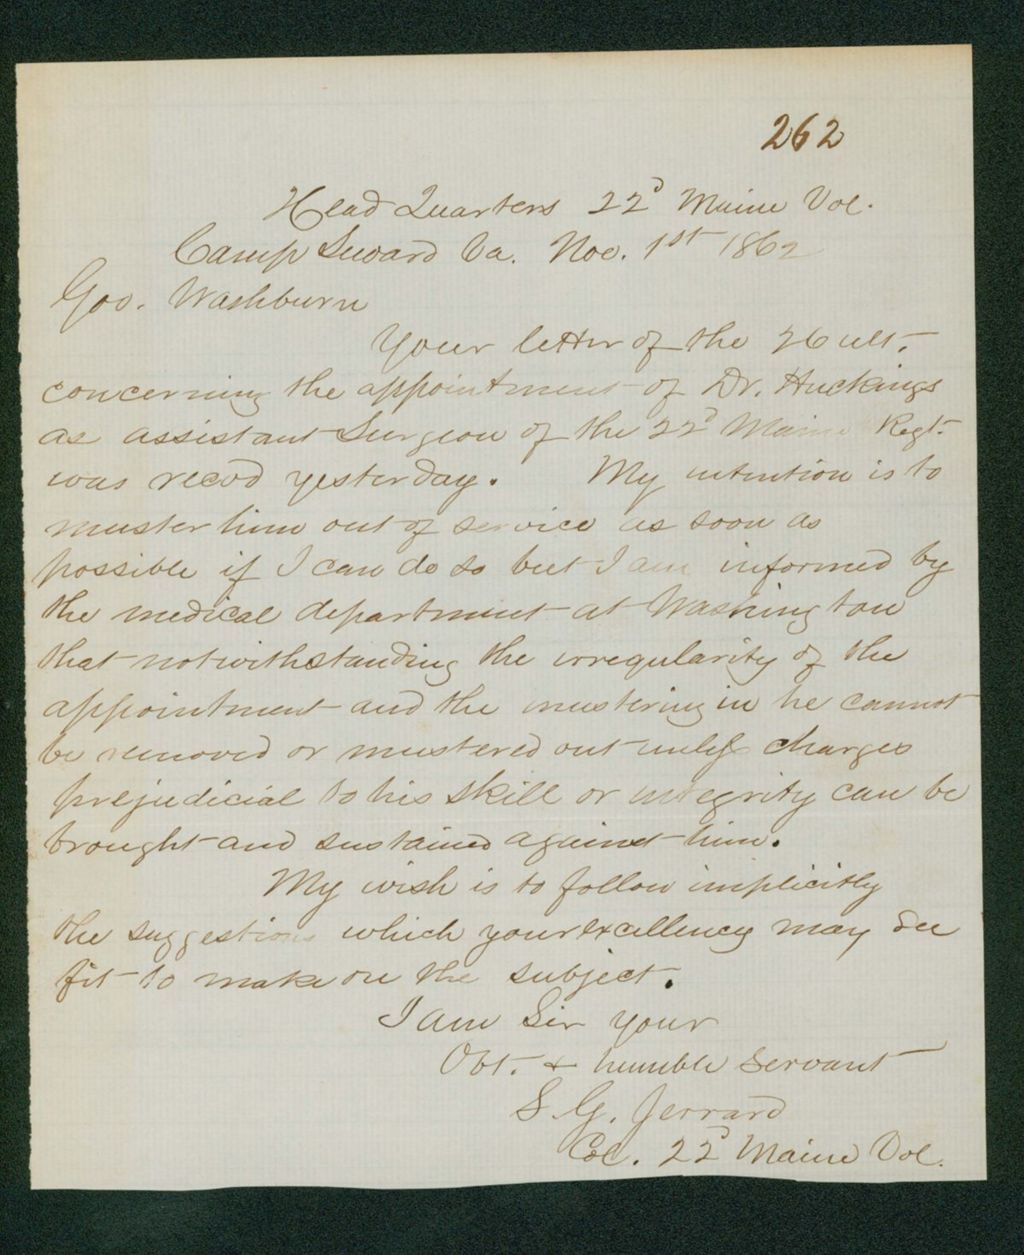 262
Head Quarters 22d Maine Vol.
Camp Seward Va. Nov. 1st 1862
Gov. Washburn
Your letter of the 26 ult.
concerning the appointment of Dr. Huckings
as assistant Surgeon of the 22d Maine Regt.
was recvd yesterday. My intention is to
muster him out of service as soon as
possible if I can do so but I am informed by
the medical department at Washington
that notwithstanding the irregularity of the
appointment and the mustering in he cannot
be removed or mustered out unless charges
prejudicial to his skill or integrity can be
brought and sustained against him.
My wish is to follow implicitly
the suggestions which your excellency may see
fit to make on the subject.
I am Sir your
Obt. & humble servant
S. G. Jerrard
Col. 22d Maine Vol.